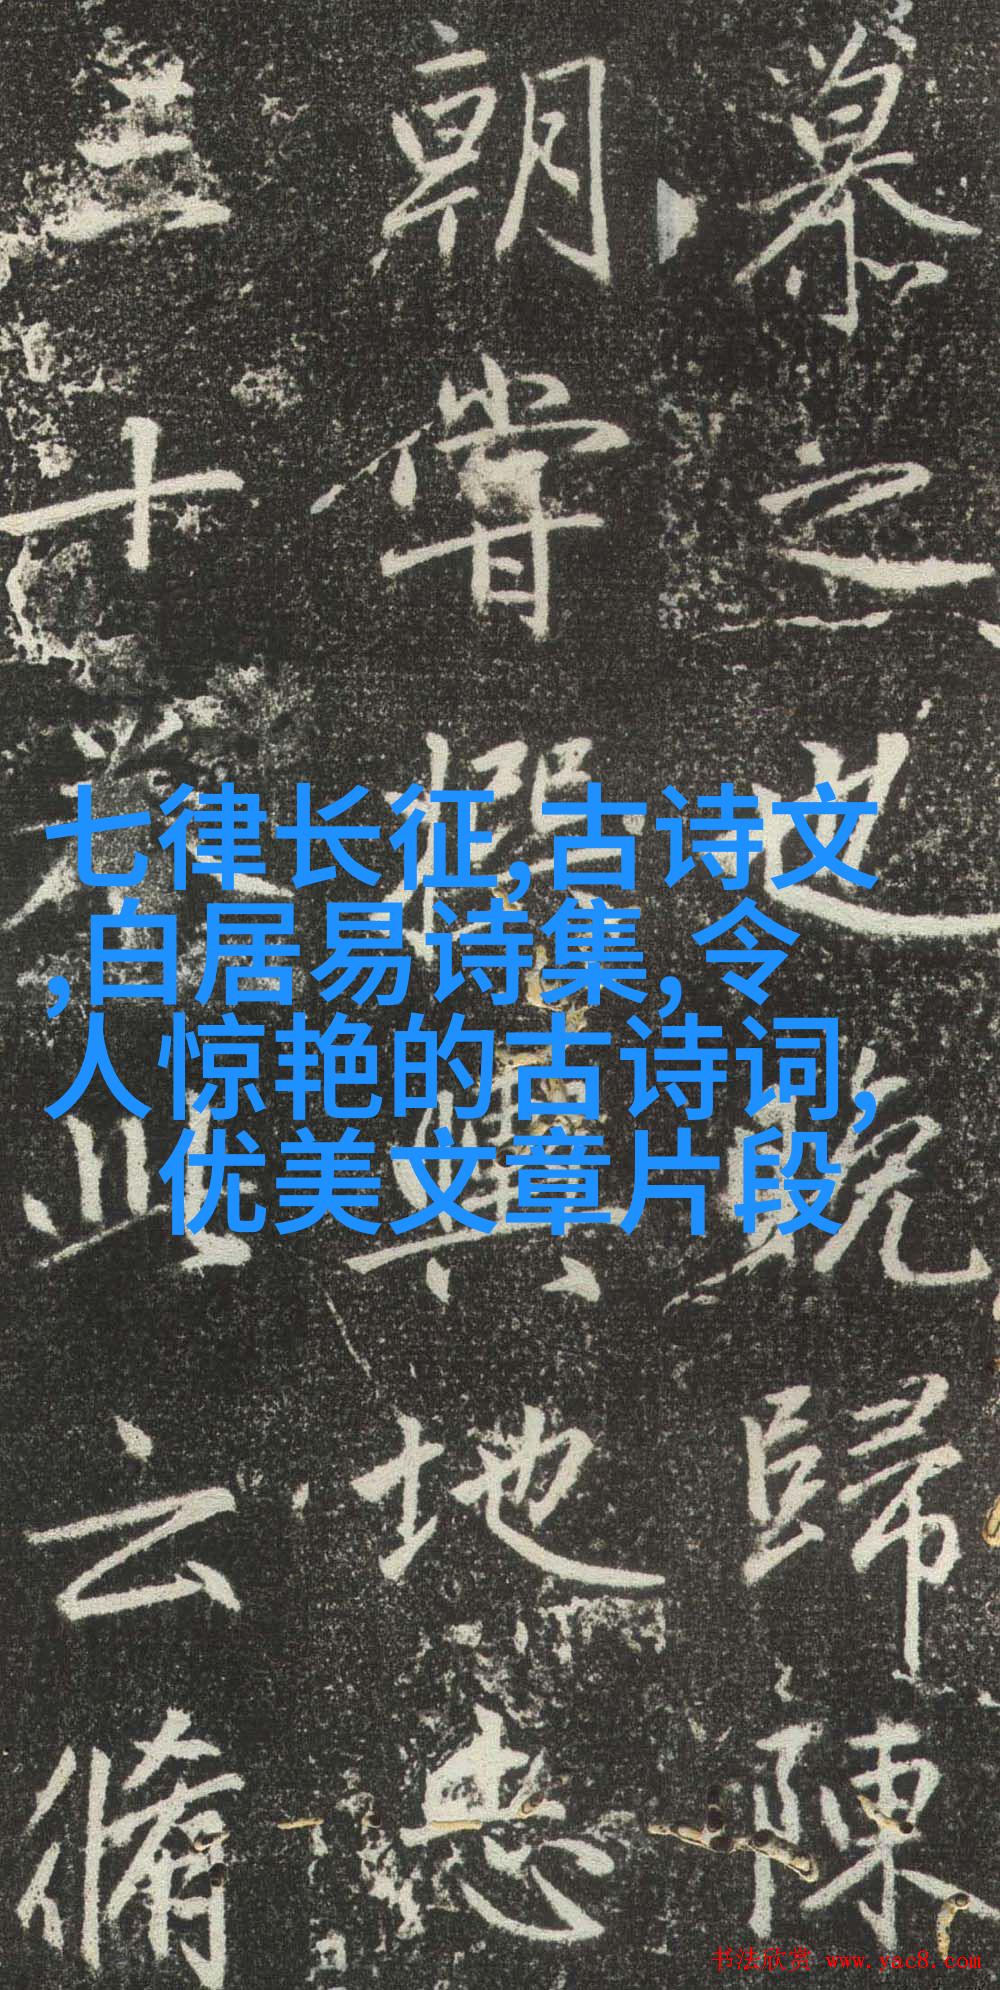 七律长征,古诗文
,白居易诗集,令
人惊艳的古诗词,
优美文章片段
之歸陳
朝嘗地志
十云脩
书法欣赏 www.yac8.com